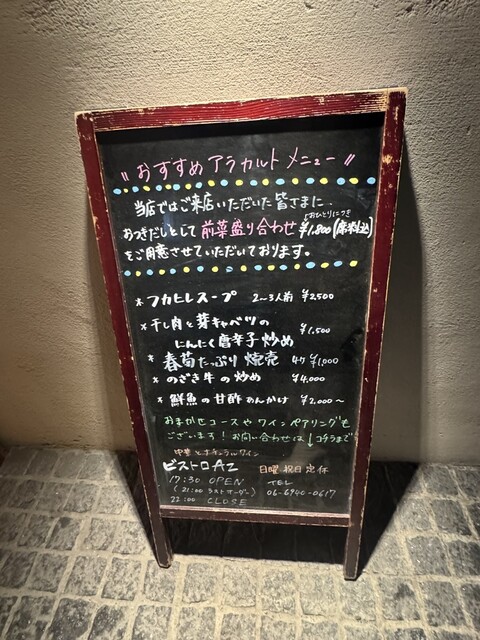 "おすすめアラカルトメニュー"
当店ではご来店いただいた皆さまに
おつきだしとして前菜盛り合わせ おひとりにつき ¥1,800(席料込)
をご用意させていただいております。
*フカヒレスープ 2〜3人前 ¥2,500
*干し肉と芽キャベツの
にんにく唐辛子炒め ¥1,500
*春菊たっぷり焼売 4ケ ¥1,000
*のざき牛の炒め ¥4,000
*鮮魚の甘酢あんかけ ¥2,000〜
おまかせコースやワインペアリングも
ございます!お問い合わせは↓コチラまで
中華とナチュラルワイン
ビストロAZ 日曜・祝日定休
17:30 OPEN TEL
(21:00 ラストオーダー) 06-6940-0617
22:00 CLOSE